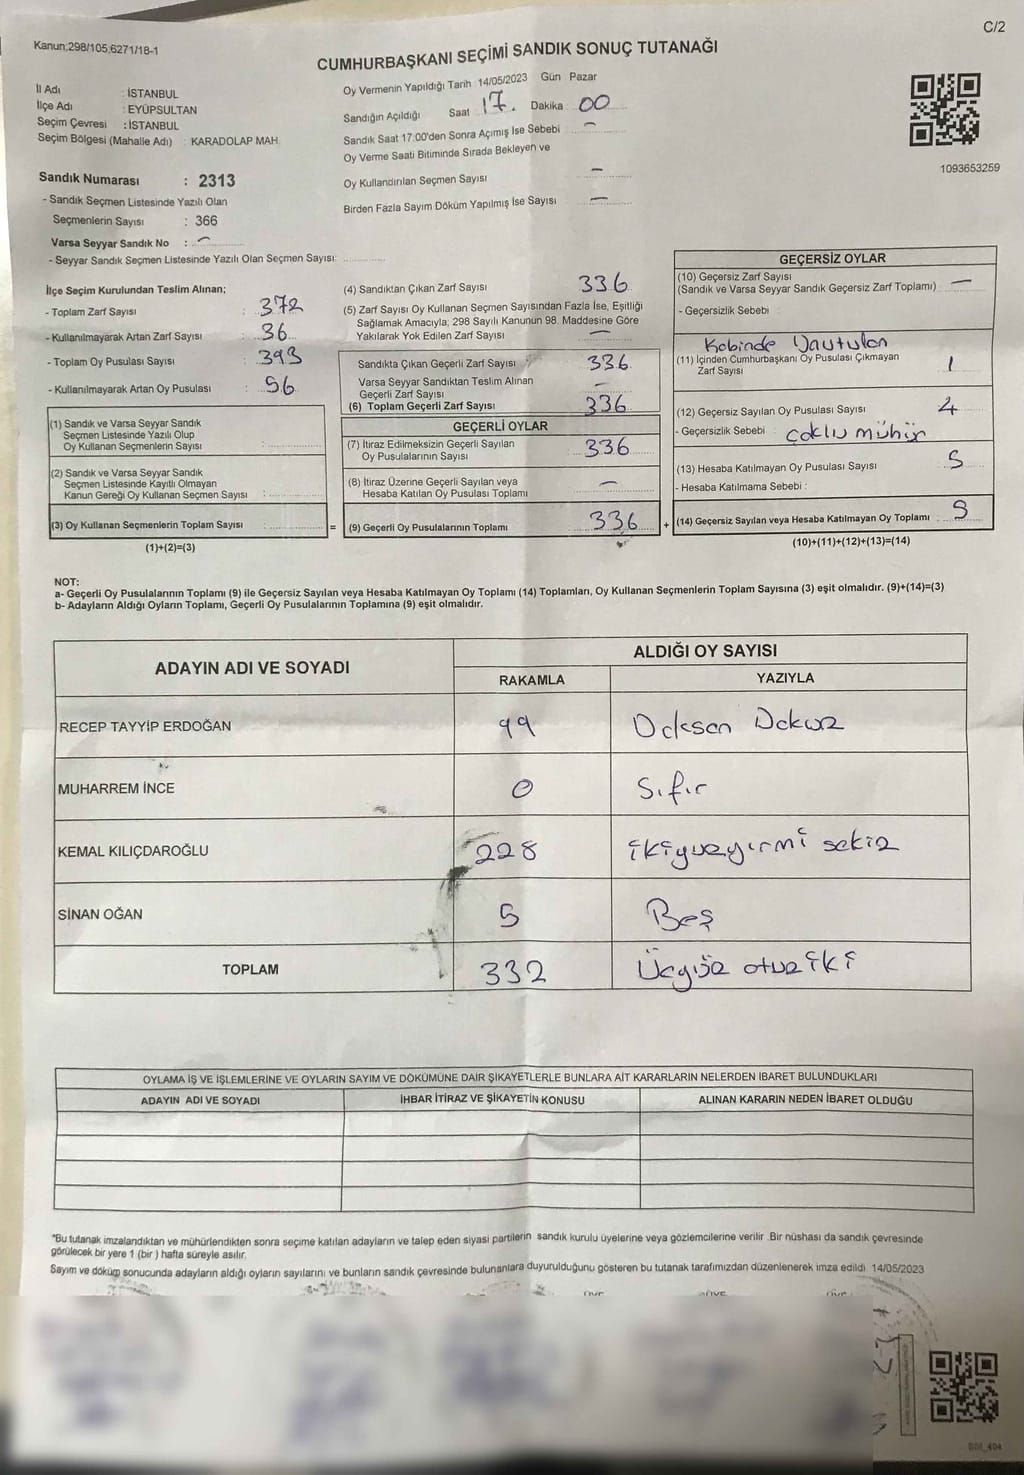 C/2
Kanun;298/105,6271/18-1
CUMHURBAŞKANI SEÇİMİ SANDIK SONUÇ TUTANAĞI
İl Adı : İSTANBUL
İlçe Adı : EYÜPSULTAN
Seçim Çevresi : İSTANBUL
Seçim Bölgesi (Mahalle Adı) : KARADOLAP MAH.
Oy Vermenin Yapıldığı Tarih 14/05/2023 Gün Pazar
Sandığın Açıldığı Saat 17. Dakika 00
Sandık Saat 17:00'den Sonra Açımış İse Sebebi –
Oy Verme Saati Bitiminde Sırada Bekleyen ve
Oy Kullandırılan Seçmen Sayısı –
Birden Fazla Sayım Döküm Yapılmış İse Sayısı –
1093653259
Sandık Numarası : 2313
- Sandık Seçmen Listesinde Yazılı Olan
Seçmenlerin Sayısı : 366
Varsa Seyyar Sandık No : –
- Seyyar Sandık Seçmen Listesinde Yazılı Olan Seçmen Sayısı:
İlçe Seçim Kurulundan Teslim Alınan;
- Toplam Zarf Sayısı : 372
- Kullanılmayarak Artan Zarf Sayısı : 36
- Toplam Oy Pusulası Sayısı : 393
- Kullanılmayarak Artan Oy Pusulası : 56
(1) Sandık ve Varsa Seyyar Sandık
Seçmen Listesinde Yazılı Olup
Oy Kullanan Seçmenlerin Sayısı :
(2) Sandık ve Varsa Seyyar Sandık
Seçmen Listesinde Kayıtlı Olmayan
Kanun Gereği Oy Kullanan Seçmen Sayısı :
(3) Oy Kullanan Seçmenlerin Toplam Sayısı :
(1)+(2)=(3)
=
(4) Sandıktan Çıkan Zarf Sayısı 336
(5) Zarf Sayısı Oy Kullanan Seçmen Sayısından Fazla İse, Eşitliği
Sağlamak Amacıyla; 298 Sayılı Kanunun 98. Maddesine Göre
Yakılarak Yok Edilen Zarf Sayısı –
Sandıkta Çıkan Geçerli Zarf Sayısı 336
Varsa Seyyar Sandıktan Teslim Alınan
Geçerli Zarf Sayısı –
(6) Toplam Geçerli Zarf Sayısı 336
GEÇERLİ OYLAR
(7) İtiraz Edilmeksizin Geçerli Sayılan
Oy Pusulalarının Sayısı 336
(8) İtiraz Üzerine Geçerli Sayılan veya
Hesaba Katılan Oy Pusulası Toplamı –
(9) Geçerli Oy Pusulalarının Toplamı 336
+
GEÇERSİZ OYLAR
(10) Geçersiz Zarf Sayısı
(Sandık ve Varsa Seyyar Sandık Geçersiz Zarf Toplamı) –
- Geçersizlik Sebebi :
Kabinde Unutulan
(11) İçinden Cumhurbaşkanı Oy Pusulası Çıkmayan
Zarf Sayısı 1
(12) Geçersiz Sayılan Oy Pusulası Sayısı 4
- Geçersizlik Sebebi : Çoklu mühür
(13) Hesaba Katılmayan Oy Pusulası Sayısı 5
- Hesaba Katılmama Sebebi :
(14) Geçersiz Sayılan veya Hesaba Katılmayan Oy Toplamı 5
(10)+(11)+(12)+(13)=(14)
NOT:
a- Geçerli Oy Pusulalarının Toplamı (9) ile Geçersiz Sayılan veya Hesaba Katılmayan Oy Toplamı (14) Toplamları, Oy Kullanan Seçmenlerin Toplam Sayısına (3) eşit olmalıdır. (9)+(14)=(3)
b- Adayların Aldığı Oyların Toplamı, Geçerli Oy Pusulalarının Toplamına (9) eşit olmalıdır.
ADAYIN ADI VE SOYADI
ALDIĞI OY SAYISI
RAKAMLA YAZIYLA
RECEP TAYYİP ERDOĞAN 99 Doksan Dokuz
MUHARREM İNCE 0 Sıfır
KEMAL KILIÇDAROĞLU 228 ikiyüzyirmi sekiz
SİNAN OĞAN 5 Beş
TOPLAM 332 Üçyüz otuz iki
OYLAMA İŞ VE İŞLEMLERİNE VE OYLARIN SAYIM VE DÖKÜMÜNE DAİR ŞİKAYETLERLE BUNLARA AİT KARARLARIN NELERDEN İBARET BULUNDUKLARI
ADAYIN ADI VE SOYADI İHBAR İTİRAZ VE ŞİKAYETİN KONUSU ALINAN KARARIN NEDEN İBARET OLDUĞU
"Bu tutanak imzalandıktan ve mühürlendikten sonra seçime katılan adayların ve talep eden siyasi partilerin sandık kurulu üyelerine veya gözlemcilerine verilir .Bir nüshası da sandık çevresinde
görülecek bir yere 1 (bir ) hafta süreyle asılır.
Sayım ve döküm sonucunda adayların aldığı oyların sayılarını ve bunların sandık çevresinde bulunanlara duyurulduğunu gösteren bu tutanak tarafımızdan düzenlenerek imza edildi 14/05/2023